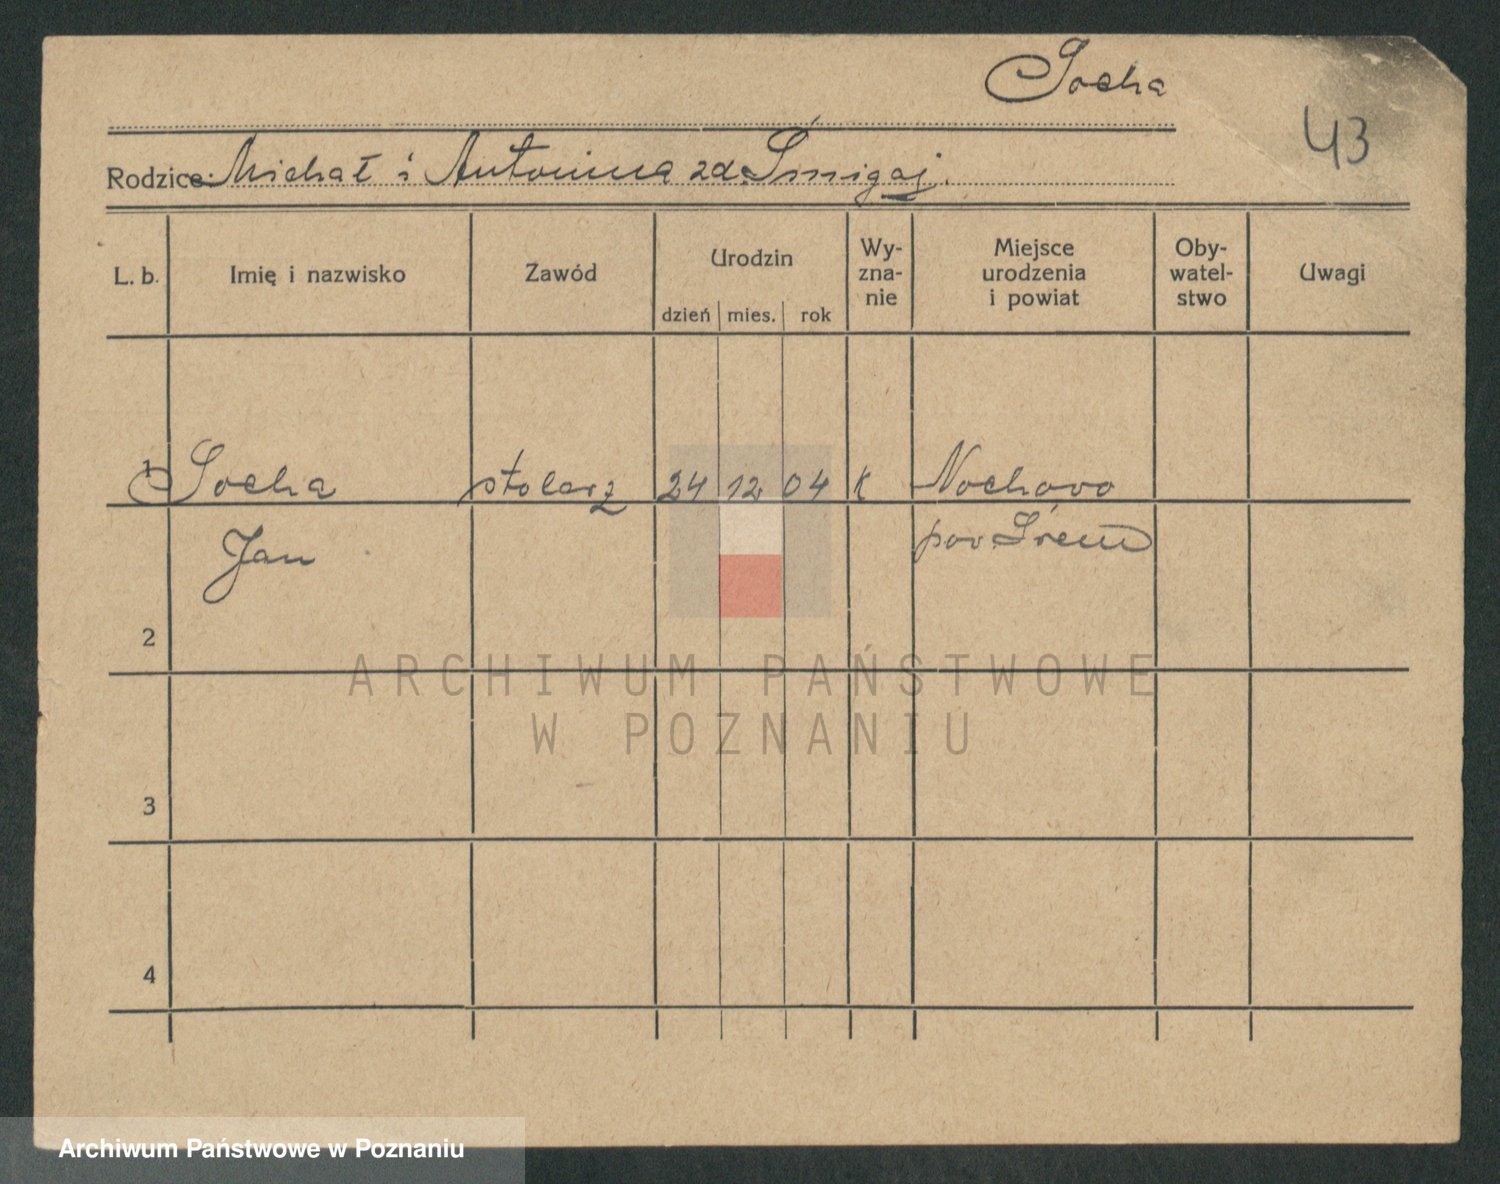 Socha
43
Rodzice: Michał i Antonina zd. Śmigaj.
L. b. Imię i nazwisko Zawód Urodzin dzień mies. rok Wy-zna-nie Miejsce urodzenia i powiat Oby-watel-stwo Uwagi
1 Socha stolarz 24 12 04 k Nochowo
Jan pow. Śrem
2
ARCHIWUM PAŃSTWOWE
W POZNANIU
3
4
Archiwum Państwowe w Poznaniu